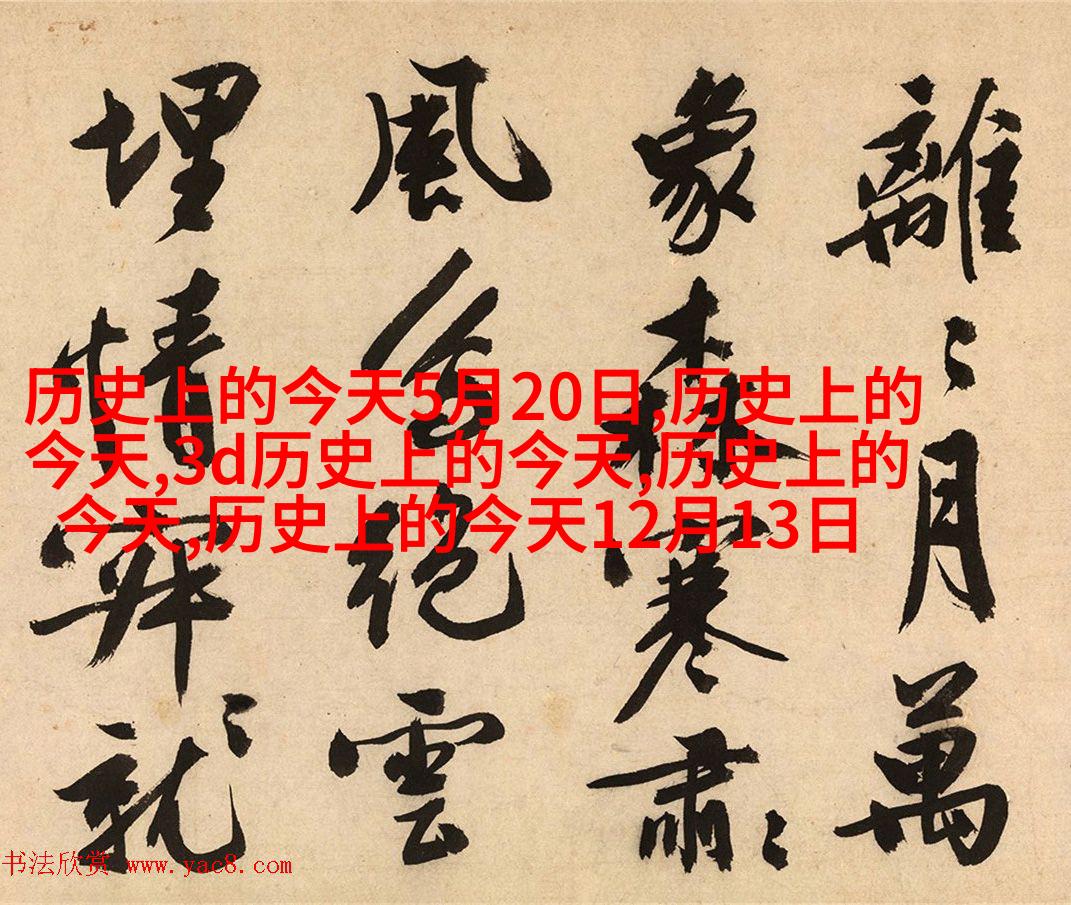 離〻月萬
象森寒肅〻
風絕雲
埋情〻就
历史上的今天5月20日,历史上的
今天,3d历史上的今天,历史上的
今天,历史上的今天12月13日
书法欣赏 www.yac8.com